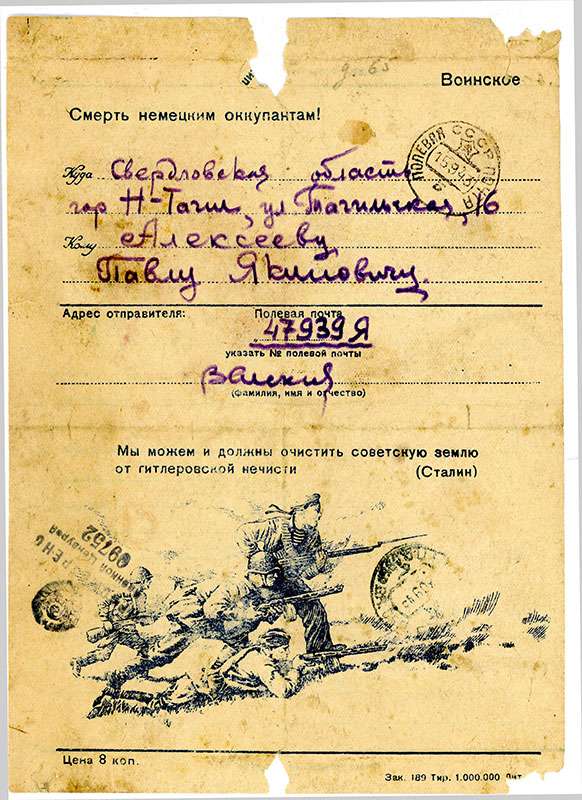 Воинское
Смерть немецким оккупантам!
Куда Свердловская область
гор Н-Тагил, ул Тагильская, 16
Кому Алексееву
Павлу Якимовичу.
СССР ПОЛЕВАЯ ПОЧТА
15.9.43
Адрес отправителя: Полевая почта
47939 Я
указать № полевой почты
(фамилия, имя и отчество)
Мы можем и должны очистить советскую землю
от гитлеровской нечисти (Сталин)
09752
Цена 8 коп.
Зак. 189 Тир. 1.000.000